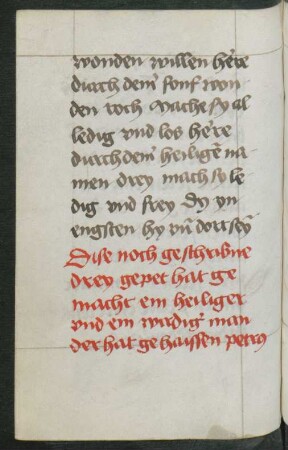 wonden willen here
durch dein fonf won
den roth mache sy al
ledig vnd los here
durch dein heiligē na
men drey mach sy le
dig vnd frey dy yn
engsten hy vn̄ dort seӯ
Dise noch geschribne
drey gepet hat ge
macht ein heiliger
vnd ein wirdig man
der hat gehaissen petrus